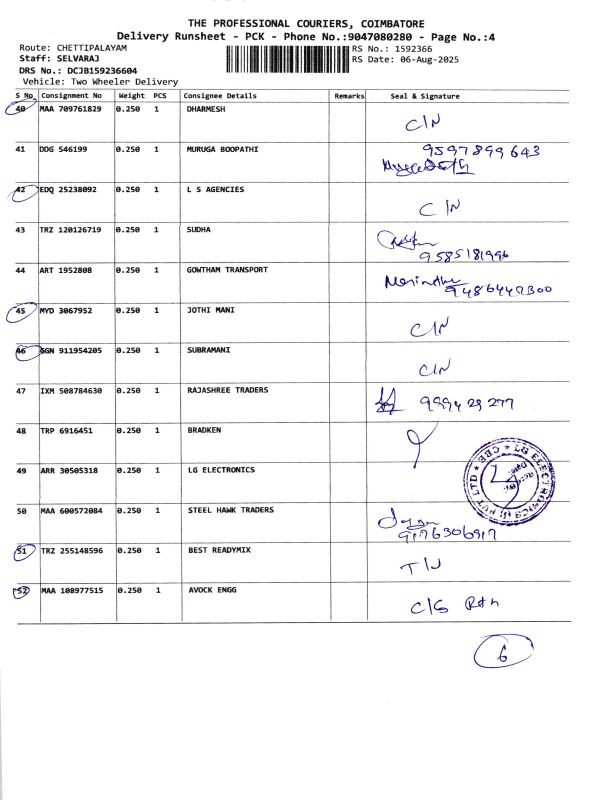 THE PROFESSIONAL COURIERS, COIMBATORE
Delivery Runsheet - PCK - Phone No.:9047080280 - Page No.:4
Route: CHETTIPALAYAM RS No.: 1592366
Staff: SELVARAJ RS Date: 06-Aug-2025
DRS No.: DCJB159236604
Vehicle: Two Wheeler Delivery
S No Consignment No Weight PCS Consignee Details Remarks Seal & Signature
40 MAA 709761829 0.250 1 DHARMESH C/N
41 DDG 546199 0.250 1 MURUGA BOOPATHI 9597899643
42 EDQ 25238092 0.250 1 L S AGENCIES C/N
43 TRZ 120126719 0.250 1 SUDHA
9585181996
44 ART 1952808 0.250 1 GOWTHAM TRANSPORT
45 MYD 3067952 0.250 1 JOTHI MANI C/N
46 GGN 911954205 0.250 1 SUBRAMANI C/N
47 IXM 508784630 0.250 1 RAJASHREE TRADERS
48 TRP 6916451 0.250 1 BRADKEN
49 ARR 30505318 0.250 1 LG ELECTRONICS
50 MAA 600572084 0.250 1 STEEL HAWK TRADERS
9176306917
51 TRZ 255148596 0.250 1 BEST READYMIX
52 MAA 108977515 0.250 1 AVOCK ENGG
6